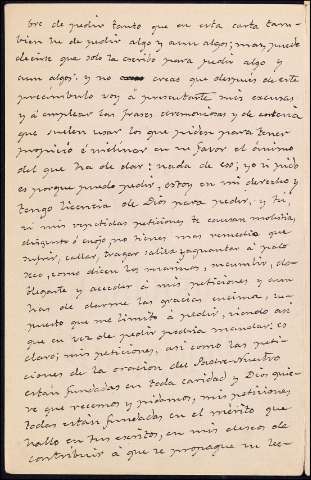 bre de pedir tanto que en esta carta tam-
bien he de pedir algo y aun algos; mas, puede
decirse que solo la escribo para pedir algo y
aun algos. Y no creas que después de este
preámbulo voy á presentarte mis excusas
y á emplear las frases ceremoniosas y de cortesía
que suelen usar los que piden para tener
propicio é inclinar en su favor el ánimo
del que ha de dar: nada de eso; yo si pido
es porque puedo pedir, estoy en mi derecho y
tengo licencia de Dios para pedir, y tú,
si mis repetidas peticiones te causan molestia,
disgusto ó enojo no tienes mas remedio que
sufrir, callar, tragar saliva y aguantar á palo
seco, como dicen los marinos, sucumbir, do-
blegarte y acceder á mis peticiones y aun
has de darme las gracias encima, su-
puesto que me limito á pedir, siendo así
que en vez de pedir podría mandar: es
claro; mis peticiones, así como las peti-
ciones de la oracion del Padre Nuestro
están fundadas en toda caridad y Dios quie-
re que recemos y pidamos, mis peticiones
todas están fundadas en el mérito que
hallo en tus escritos, en mis deseos de
contribuir á que se propague su lec-